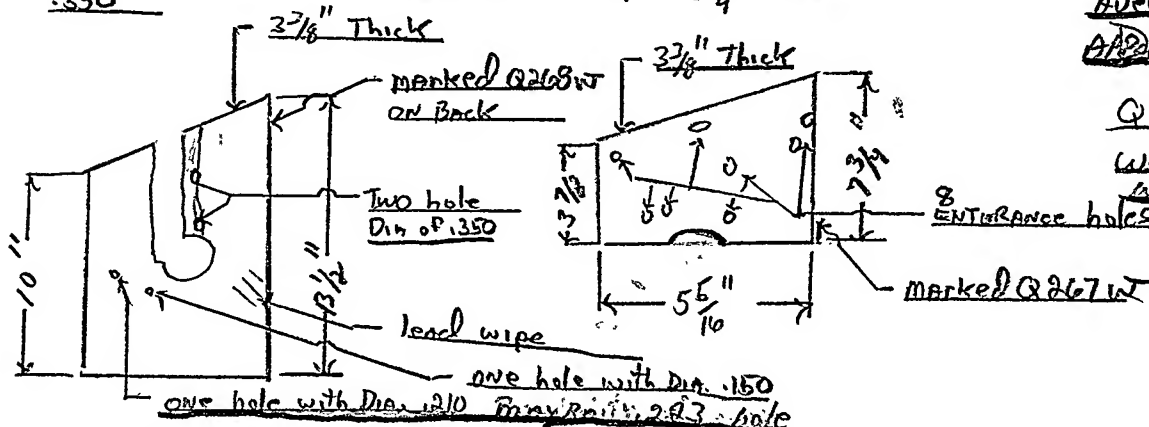 .350
3 3/8" Thick
MARKED Q268 WT
ON BACK
Two hole
DIA of .350
10"
13 1/2"
lead wipe
one hole with DIA. .150
one hole with DIA. .210
hole
3 3/8" Thick
3 7/8"
7 3/4"
8
ENTERANCE holes
5 5/16"
MARKED Q267 WT
Q